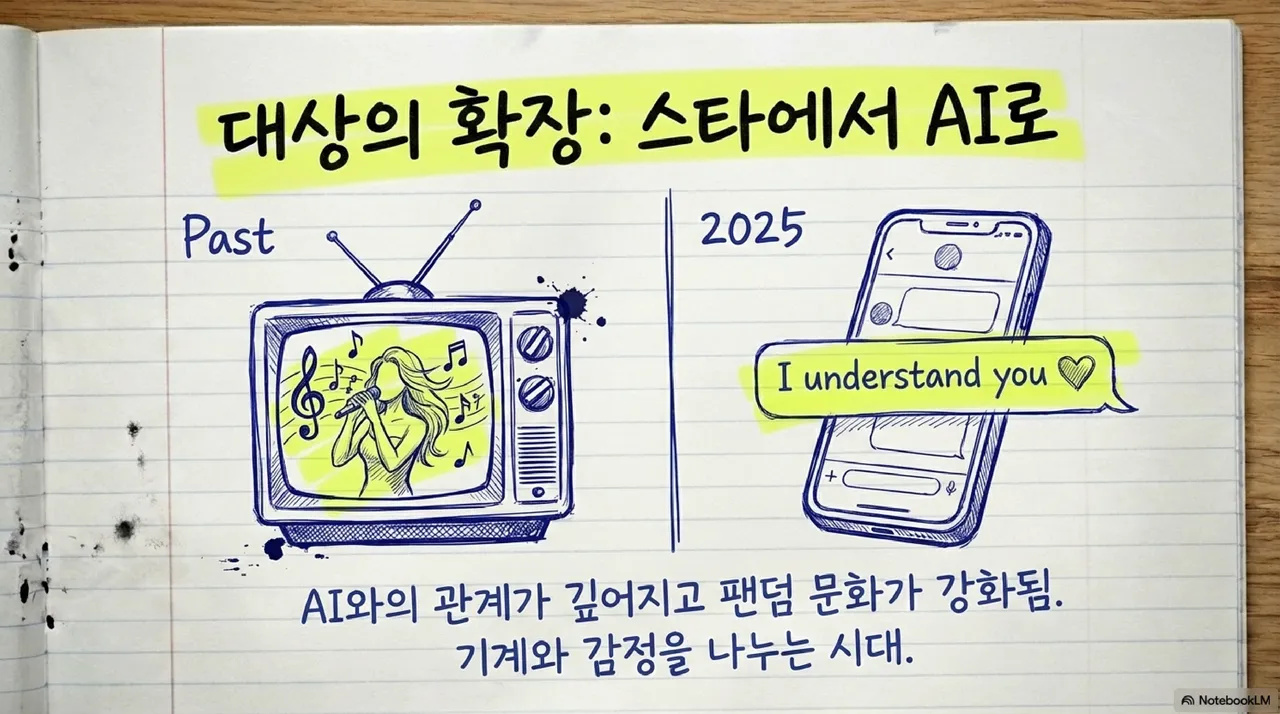 대상의 확장: 스타에서 AI로
Past
2025
I understand you
AI와의 관계가 깊어지고 팬덤 문화가 강화됨.
기계와 감정을 나누는 시대.
NotebookLM